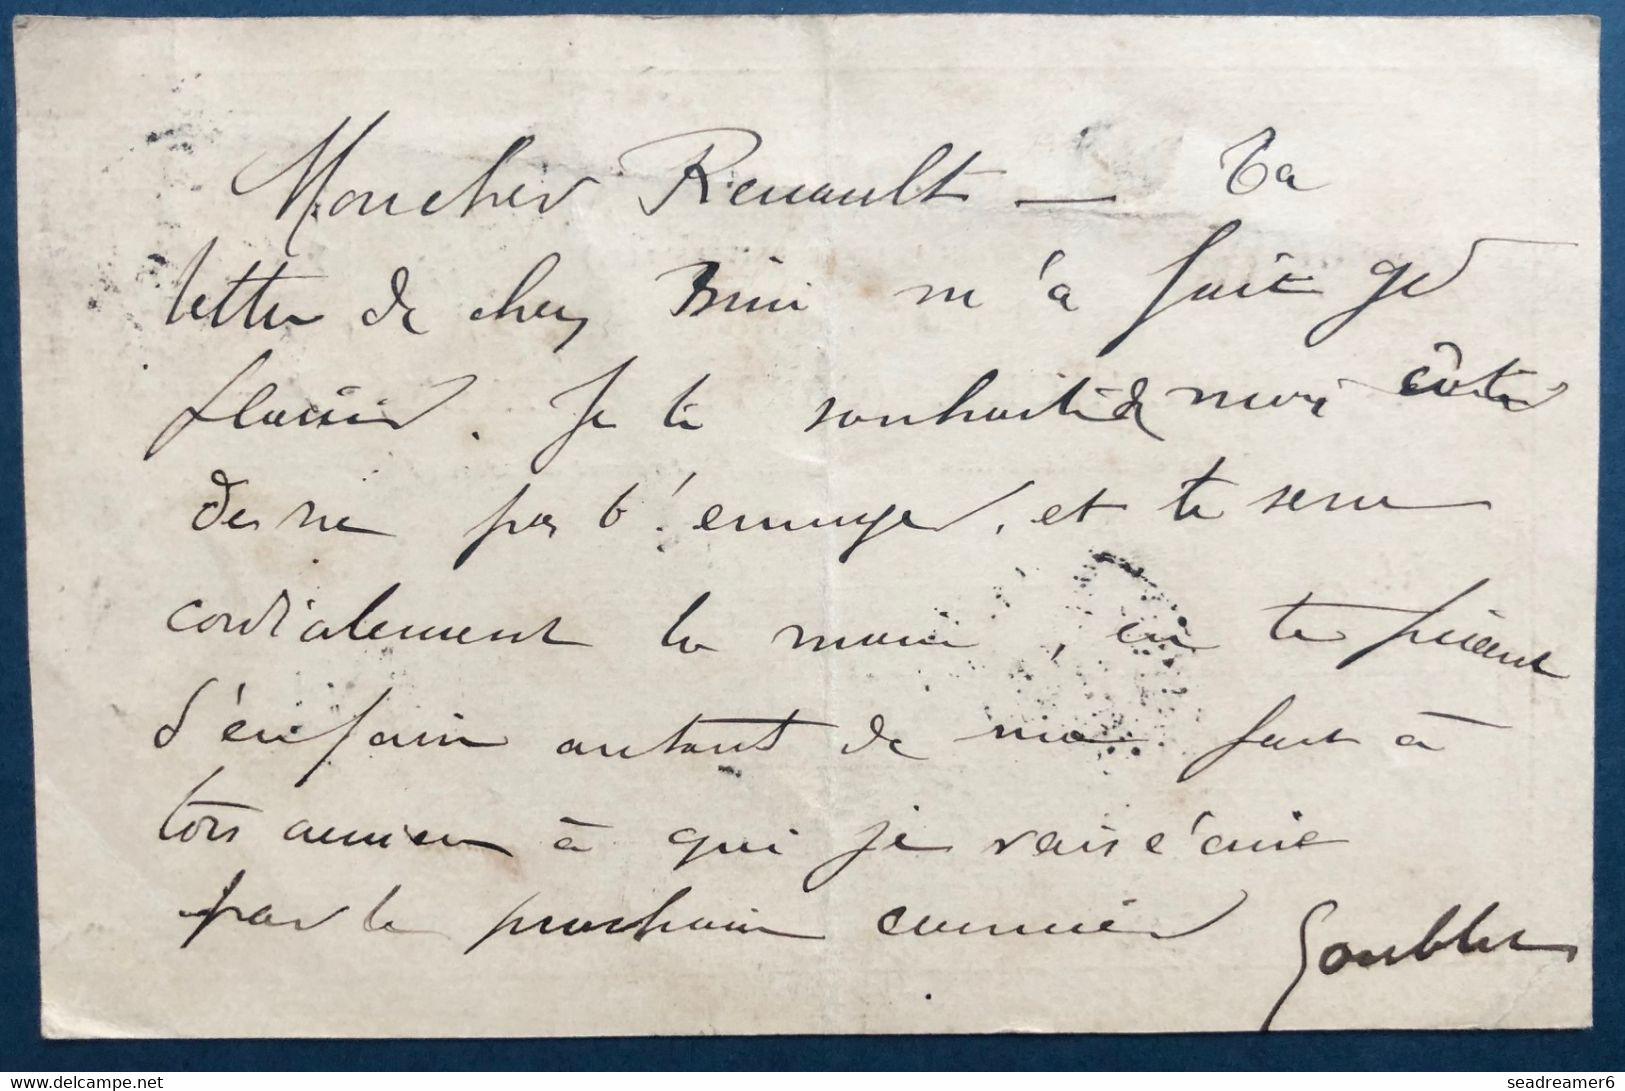 Mon cher Renault — Ta
lettre de chez m'a fait gd
plaisir. Je te souhaite de mon côté
de ne pas t'ennuyer, et te serre
cordialement la main, en te priant
d'en faire autant de ma part à
tous à qui je vais
par le prochain courrier
Goublet
seadreamer6